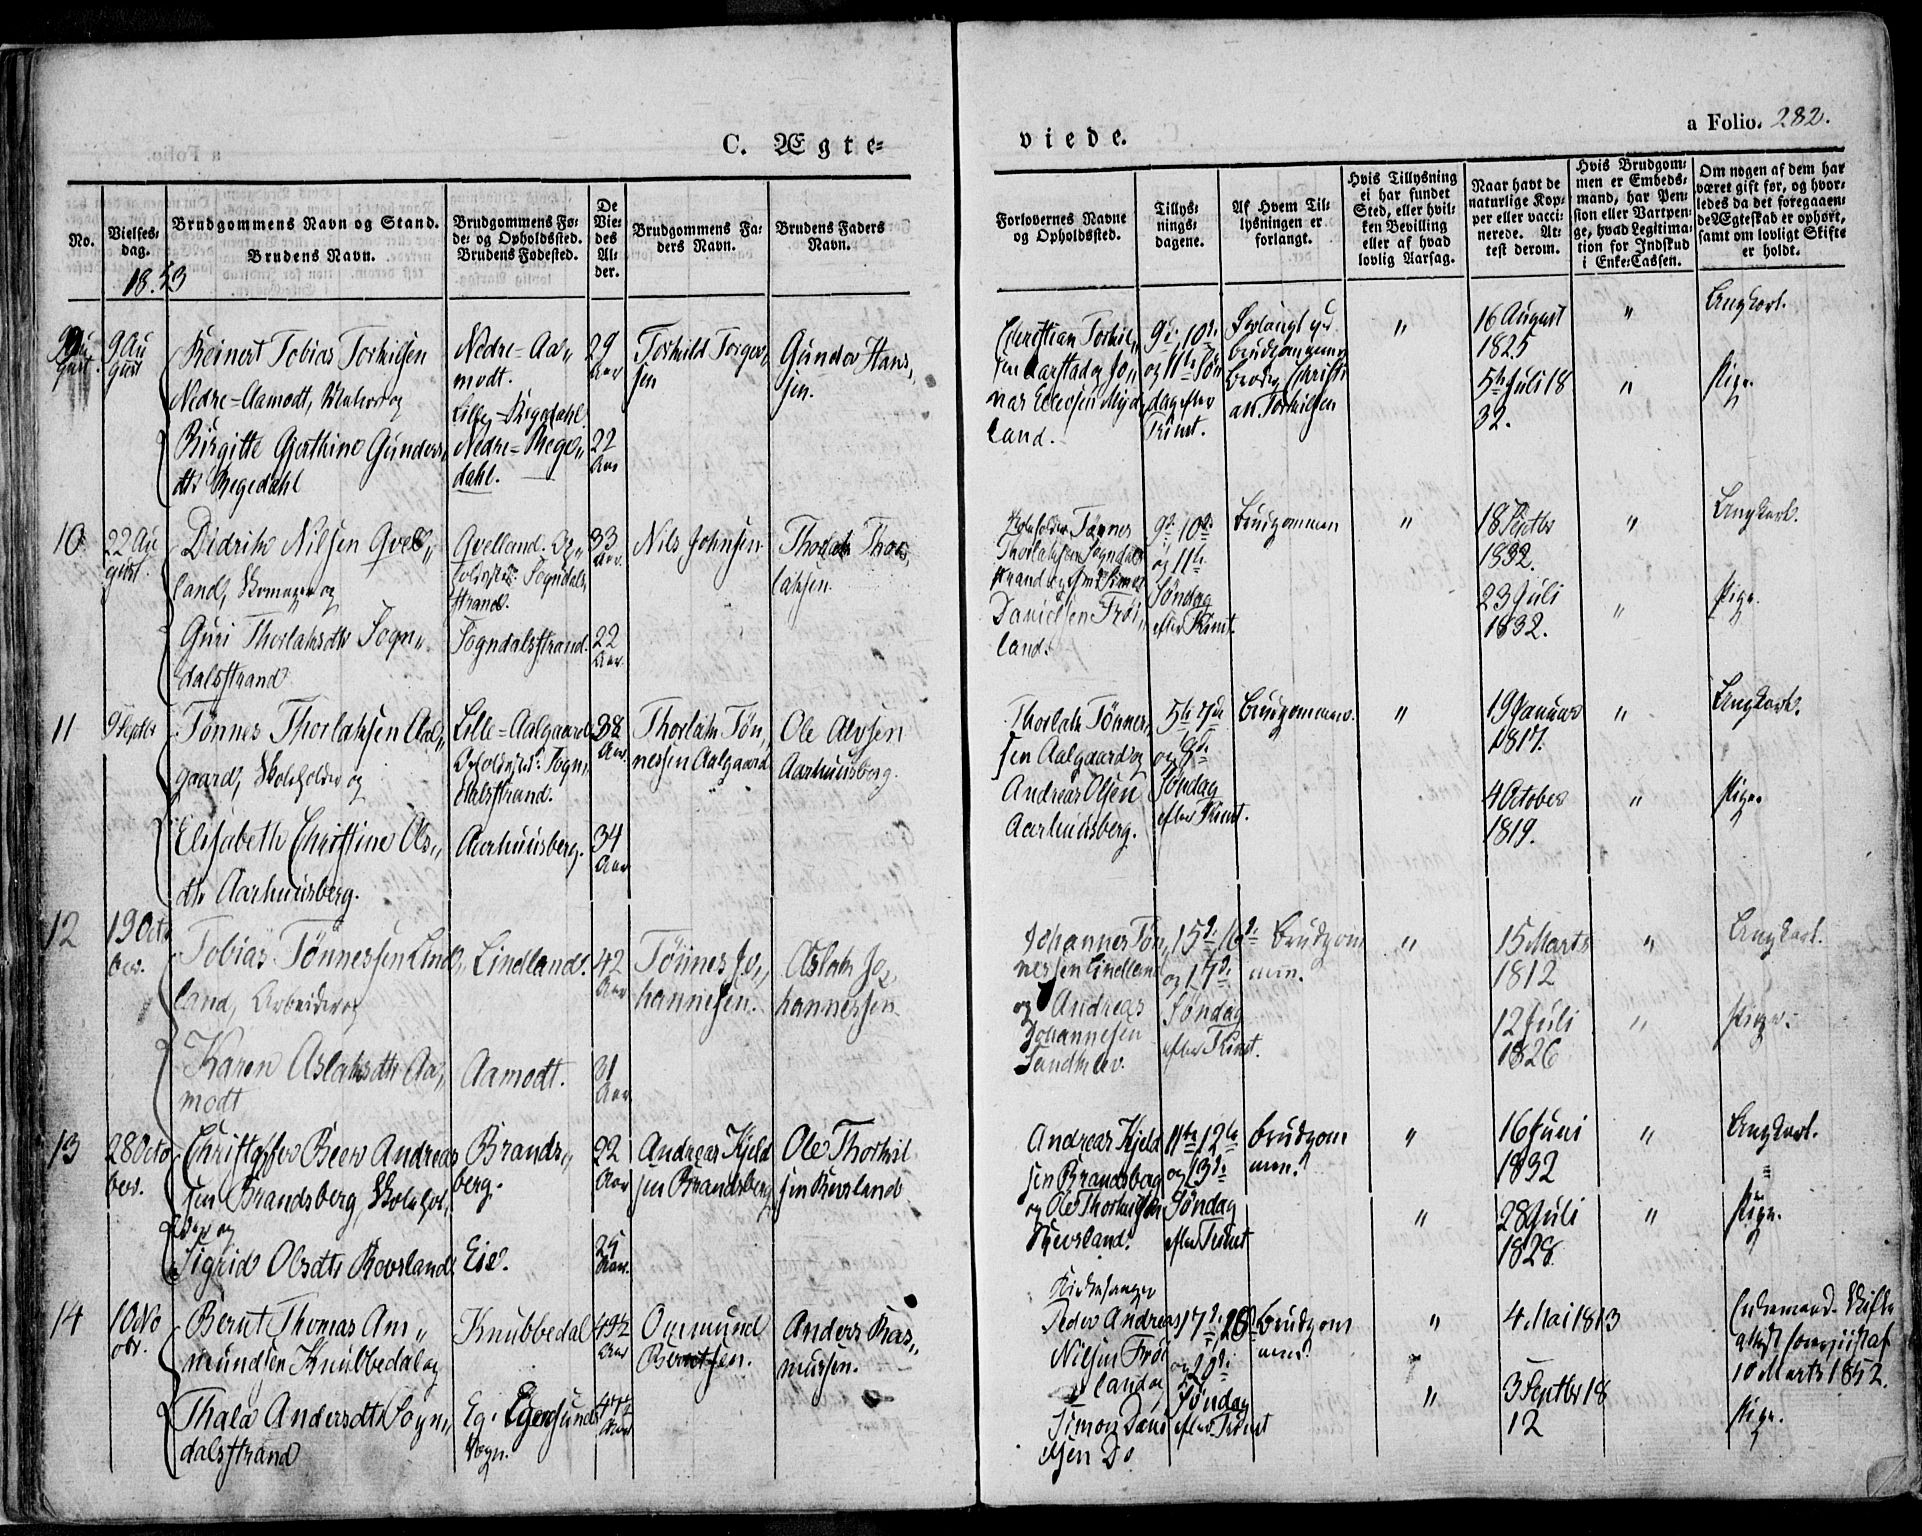 C. Ægte=
viede.
a Folio. 282.
No.
Vielses-
dag.
Brudgommens Navn og Stand.
Brudens Navn.
Brudgommens Fø-
de- og Opholdssted.
Brudens Fødested.
De
Vie-
des
Al-
der.
Brudgommens Fa-
ders Navn.
Brudens Faders
Navn.
Forlovernes Navne
og Opholdssted.
Tillys-
nings-
dagene.
Af Hvem Til-
lysningen er
forlangt.
Hvis Tillysning
ei har fundet
Sted, eller hvil-
ken Bevilling
eller af hvad
lovlig Aarsag.
Naar havt de
naturlige Kop-
per eller vacci-
nerede. At-
test derom.
Hvis Brudgom-
men er Embeds-
mand, har Pen-
sion eller Vartpen-
ge, hvad Legitima-
tion for Indskud
i Enke-Cassen.
Om nogen af dem har
været gift før, og hvor-
ledes da det foregaaen-
de Ægteskab er ophørt,
samt om lovligt Skifte
er holdt.
1853
9 Au
gust
Reinert Tobias Torkilsen
Nedre=Aamodt, Matros og
Birgitte Gjerthine Gunders„
dtr Regedahl
Nedre=Aa„
modt.
Lille=Regedahl.
Nedre=Rege„
dahl.
29
Aar
22
Aar
Torkild Torger„
sen
Gunder Hans„
sen.
Christian Torkil„
sen Aarstad og Jo„
nas Eilertsen Myd
land.
9de, 10de
og 11te Søn
dag efter
Trinit.
Forlangt ved
Brudgommens
Broder Christi
an Torkilsen
"
16 August
1825
5te Juli 18
32.
"
"
Ungkarl.
Pige.
10
22 Au
gust.
Didrik Nilsen Qvel„
land, Skomager og
Guri Thorlaksdtr Sogn„
dalsstrand
Qvelland. Op„
holdssted: Sogndals„
strand.
Sogndalsstrand.
33
Aar.
22
Aar.
Nils Johnsen
Thorlak Thor„
laksen.
Skoleholder Tønnes
Thorlaksen Sogndals
strand og Simon
Danielsen Frøi„
land.
9de 10de
og 11te
Søndag
efter Trinit.
Brudgommen
"
18 Septbr
1832.
23 Juli
1832.
"
"
Ungkarl.
Pige.
11
9 Septbr
Tønnes Thorlaksen Aal„
gaard, Skoleholder og
Elisabeth Christine Ols„
dtr Aarhuusberg.
Lille=Aalgaard
Opholdssted: Sogn„
dalsstrand.
Aarhuusberg.
38
Aar.
34
Aar
Thorlak Tøn„
nessen Aalgaard
Ole Alvsen
Aarhuusberg.
Thorlak Tønnes„
sen Aalgaard og
Andreas Olsen
Aarhuusberg.
5te 7de
og 8de
Søndag
efter Trinit.
Brudgommen.
"
19 Januar
1817.
4 October
1819.
"
"
Ungkarl.
Pige.
12
19 Octo
ber.
Tobias Tønnessen Lind„
land, Arbeider og
Karen Aslaksdtr Aa„
modt
Lindland.
Aamodt.
42
Aar
31
Aar
Tønnes Jo„
hannesen.
Aslak Jo„
hannessen.
Johannes Tøn„
nessen Lindland
og Andreas
Johannesen
Sandklev.
15de 16de
og 17de
Søndag
efter Trinit.
Brudgom
men.
"
15 Marts
1812
12 Juli
1826
"
"
Ungkarl.
Pige.
13
28 Octo
ber.
Christopher Beer Andreas
sen Brandsberg, Skolehol„
der og
Sigrid Olsdtr Revsland
Brands„
berg.
Eie.
22
Aar
25
Aar.
Andreas Kjeld
sen Brandsberg
Ole Thorkil
sen Revsland
Andreas Kjeld
sen Brandsberg
og Ole Thorkilsen
Revsland.
11te 12te
og 13de
Søndag
efter Trinit
Brudgom
men.
"
"
16 Juni
1832
28 Juli
1828.
"
"
Ungkarl.
"
Pige.
14
10 No
vbr.
Bernt Thomas Am„
mundsen Knubbedal og
Thala Andersdtr Sogn„
dalsstrand
Knubbedal
Eg. Egersunds
Sogn.
42
Aar
Ommund
Berntsen.
Anders Ras„
mussen.
Kirkesanger
Peder Andreas
Nilsen Frøi
land og
Simon Dani
elsen Do
17de,
og 20de
Søndag
efter Trinit
Brudgom
men.
"
"
4 Mai 1813
3 Septbr 18
12
Enkemand. Skifte
10 Marts 1852.
Pige.